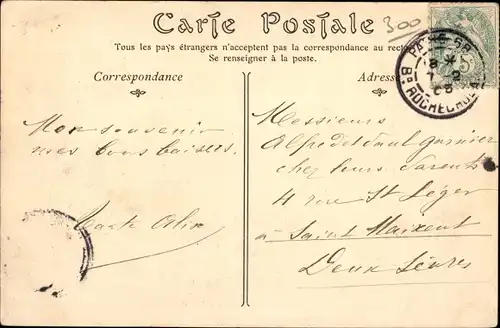 Carte Postale
300
Tous les pays étrangers n'acceptent pas la correspondance au recto
Se renseigner à la poste.
Correspondance
Adresse
PARIS
7 2
05
Bd ROCHECHOUART
Mon souvenir
mes bons baisers.
Messieurs
Alfred et Paul Garnier
chez leurs Parents
4 rue St Léger
à Saint Maixent
Deux Sèvres